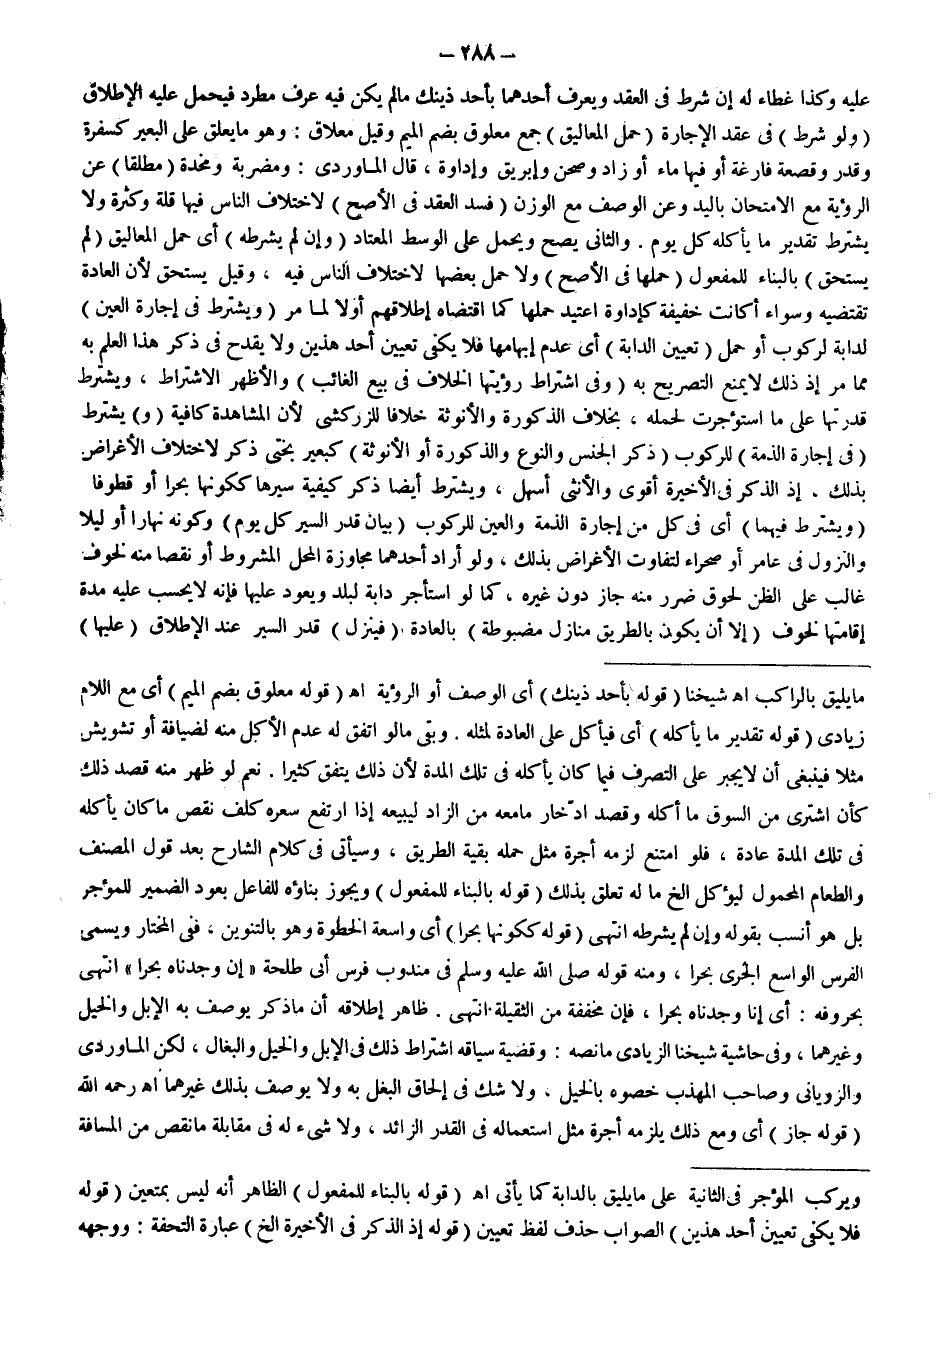 – ٢٨٨ –
عليه وكذا غطاء له إن شرط فى العقد ويعرف أحدهما بأحد ذينك مالم يكن فيه عرف مطرد فيحمل عليه الإطلاق
( ولو شرط ) فى عقد الإجارة ( حمل المعاليق ) جمع معلوق بضم الميم وقيل معلاق : وهو مايعلق على البعير كسفرة
وقدر وقصعة فارغة أو فيها ماء أو زاد وصحن وإبريق وإداوة ، قال الماوردى : ومضربة ومخدة ( مطلقا ) عن
الرؤية مع الامتحان باليد وعن الوصف مع الوزن ( فسد العقد فى الأصح ) لاختلاف الناس فيها قلة وكثرة ولا
يشترط تقدير ما يأكله كل يوم . والثانى يصح ويحمل على الوسط المعتاد ( وإن لم يشرطه ) أى حمل المعاليق ( لم
يستحق ) بالبناء للمفعول ( حملها فى الأصح ) ولا حمل بعضها لاختلاف الناس فيه ، وقيل يستحق لأن العادة
تقتضيه وسواء أكانت خفيفة كإداوة اعتيد حملها كما اقتضاه إطلاقهم أولا لما مر ( ويشترط فى إجارة العين )
لدابة لركوب أو حمل ( تعيين الدابة ) أى عدم إبهامها فلا يكفى تعيين أحد هذين ولا يقدح فى ذكر هذا العلم به
مما مر إذ ذلك لايمنع التصريح به ( وفى اشتراط رؤيتها الخلاف فى بيع الغائب ) والأظهر الاشتراط ، ويشترط
قدرتها على ما استؤجرت لحمله ، بخلاف الذكورة والأنوثة خلافا للزركشى لأن المشاهدة كافية ( و ) يشترط
( فى إجارة الذمة ) للركوب ( ذكر الجنس والنوع والذكورة أو الأنوثة ) كبعير بختى ذكر لاختلاف الأغراض
بذلك . إذ الذكر فى الأخيرة أقوى والأنثى أسهل ، ويشترط أيضا ذكر كيفية سيرها ككونها بحرا أو قطوفا
( ويشترط فيهما ) أى فى كل من إجارة الذمة والعين للركوب ( بيان قدر السير كل يوم ) وكونه نهارا أو ليلا
والنزول فى عامر أو صحراء لتفاوت الأغراض بذلك ، ولو أراد أحدهما مجاوزة المحل المشروط أو نقصا منه لخوف
غالب على الظن لحوق ضرر منه جاز دون غيره ، كما لو استأجر دابة لبلد ويعود عليها فإنه لايحسب عليه مدة
إقامتها لخوف ( إلا أن يكون بالطريق منازل مضبوطة ) بالعادة ( فينزل ) قدر السير عند الإطلاق ( عليها )
مايليق بالراكب اهـ شيخنا ( قوله بأحد ذينك ) أى الوصف أو الرؤية اهـ ( قوله معلوق بضم الميم ) أى مع اللام
زيادى ( قوله تقدير ما يأكله ) أى فيأكل على العادة لمثله . وبقى مالو اتفق له عدم الأكل منه لضيافة أو تشويش
مثلا فينبغى أن لايجبر على التصرف فيما كان يأكله فى تلك المدة لأن ذلك يتفق كثيرا . نعم لو ظهر منه قصد ذلك
كأن اشترى من السوق ما أكله وقصد ادّخار مامعه من الزاد ليبيعه إذا ارتفع سعره كلف نقص ماكان يأكله
فى تلك المدة عادة ، فلو امتنع لزمه أجرة مثل حمله بقية الطريق ، وسيأتى فى كلام الشارح بعد قول المصنف
والطعام المحمول ليؤكل الخ ما له تعلق بذلك ( قوله بالبناء للمفعول ) ويجوز بناؤه للفاعل بعود الضمير للمؤجر
بل هو أنسب بقوله وإن لم يشرطه انتهى ( قوله ككونها بحرا ) أى واسعة الخطوة وهو بالتنوين ، ففى المختار ويسمى
الفرس الواسع الجرى بحرا ، ومنه قوله صلى الله عليه وسلم فى مندوب فرس أبى طلحة « إن وجدناه بحرا » انتهى
بحروفه : أى إنا وجدناه بحرا ، فإن مخففة من الثقيلة انتهى . ظاهر إطلاقه أن ماذكر يوصف به الإبل والخيل
وغيرهما ، وفى حاشية شيخنا الزيادى مانصه : وقضية سياقه اشتراط ذلك فى الإبل والخيل والبغال ، لكن الماوردى
والرويانى وصاحب المهذب خصوه بالخيل ، ولا شك فى إلحاق البغل به ولا يوصف بذلك غيرهما اهـ رحمه الله
( قوله جاز ) أى ومع ذلك يلزمه أجرة مثل استعماله فى القدر الزائد ، ولا شىء له فى مقابلة مانقص من المسافة
ويركب المؤجر فى الثانية على مايليق بالدابة كما يأتى اهـ ( قوله بالبناء للمفعول ) الظاهر أنه ليس بمتعين ( قوله
فلا يكفى تعيين أحد هذين ) الصواب حذف لفظ تعيين ( قوله إذ الذكر فى الأخيرة الخ ) عبارة التحفة : ووجهه